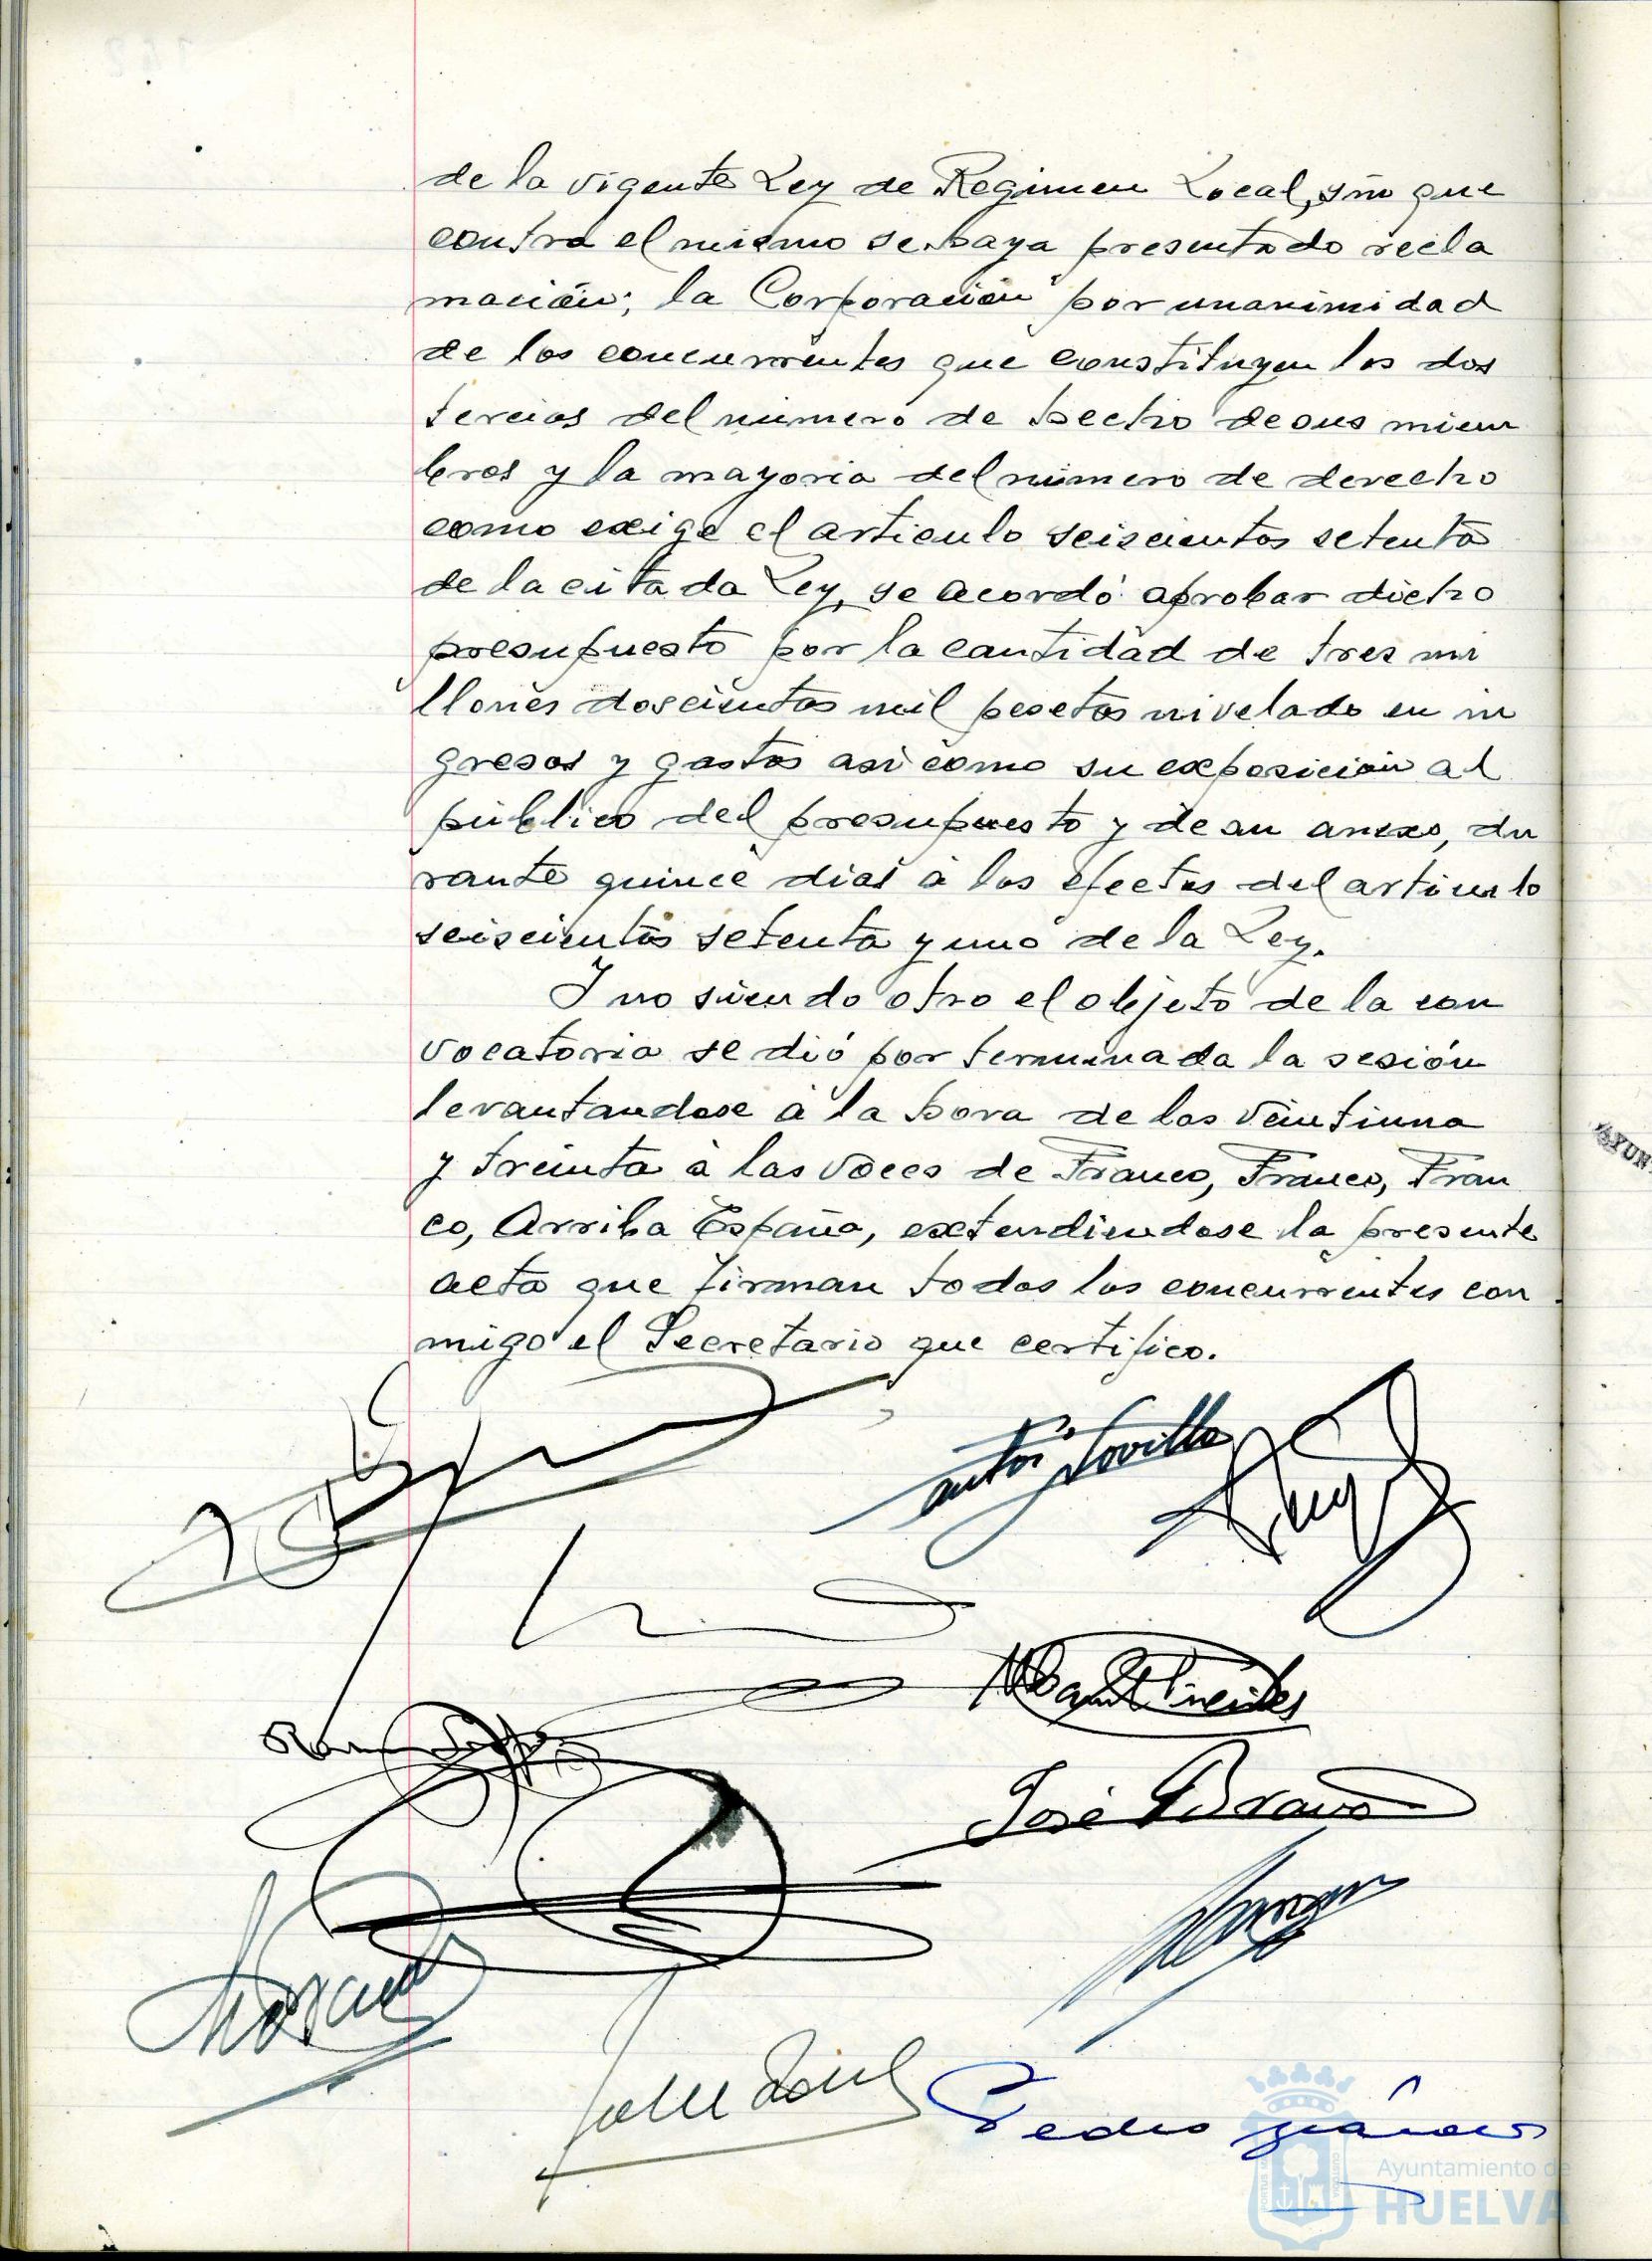 de la vigente Ley de Regimen Local, sin que
contra el mismo se haya presentado recla
mación; la Corporación por unanimidad
de los concurrentes que constituyen los dos
tercios del número de hecho de sus miem
bros y la mayoria del número de derecho
como exige el articulo seiscientos setenta
de la citada Ley, se acordó aprobar dicho
presupuesto por la cantidad de tres mi
llones doscientas mil pesetas nivelado en in
gresos y gastos asi como su exposición al
público del presupuesto y de su anexo, du
rante quince dias à los efectos del articulo
seiscientos setenta y uno de la Ley.
Y no siendo otro el objeto de la con
vocatoria se dió por terminada la sesión
levantandose à la hora de las veintiuna
y treinta à las voces de Franco, Franco, Fran
co, Arriba España, extendiendose la presente
acta que firman todos los concurrentes con
migo el Secretario que certifico.
José Bravo
Pedro
Ayuntamiento de
HUELVA